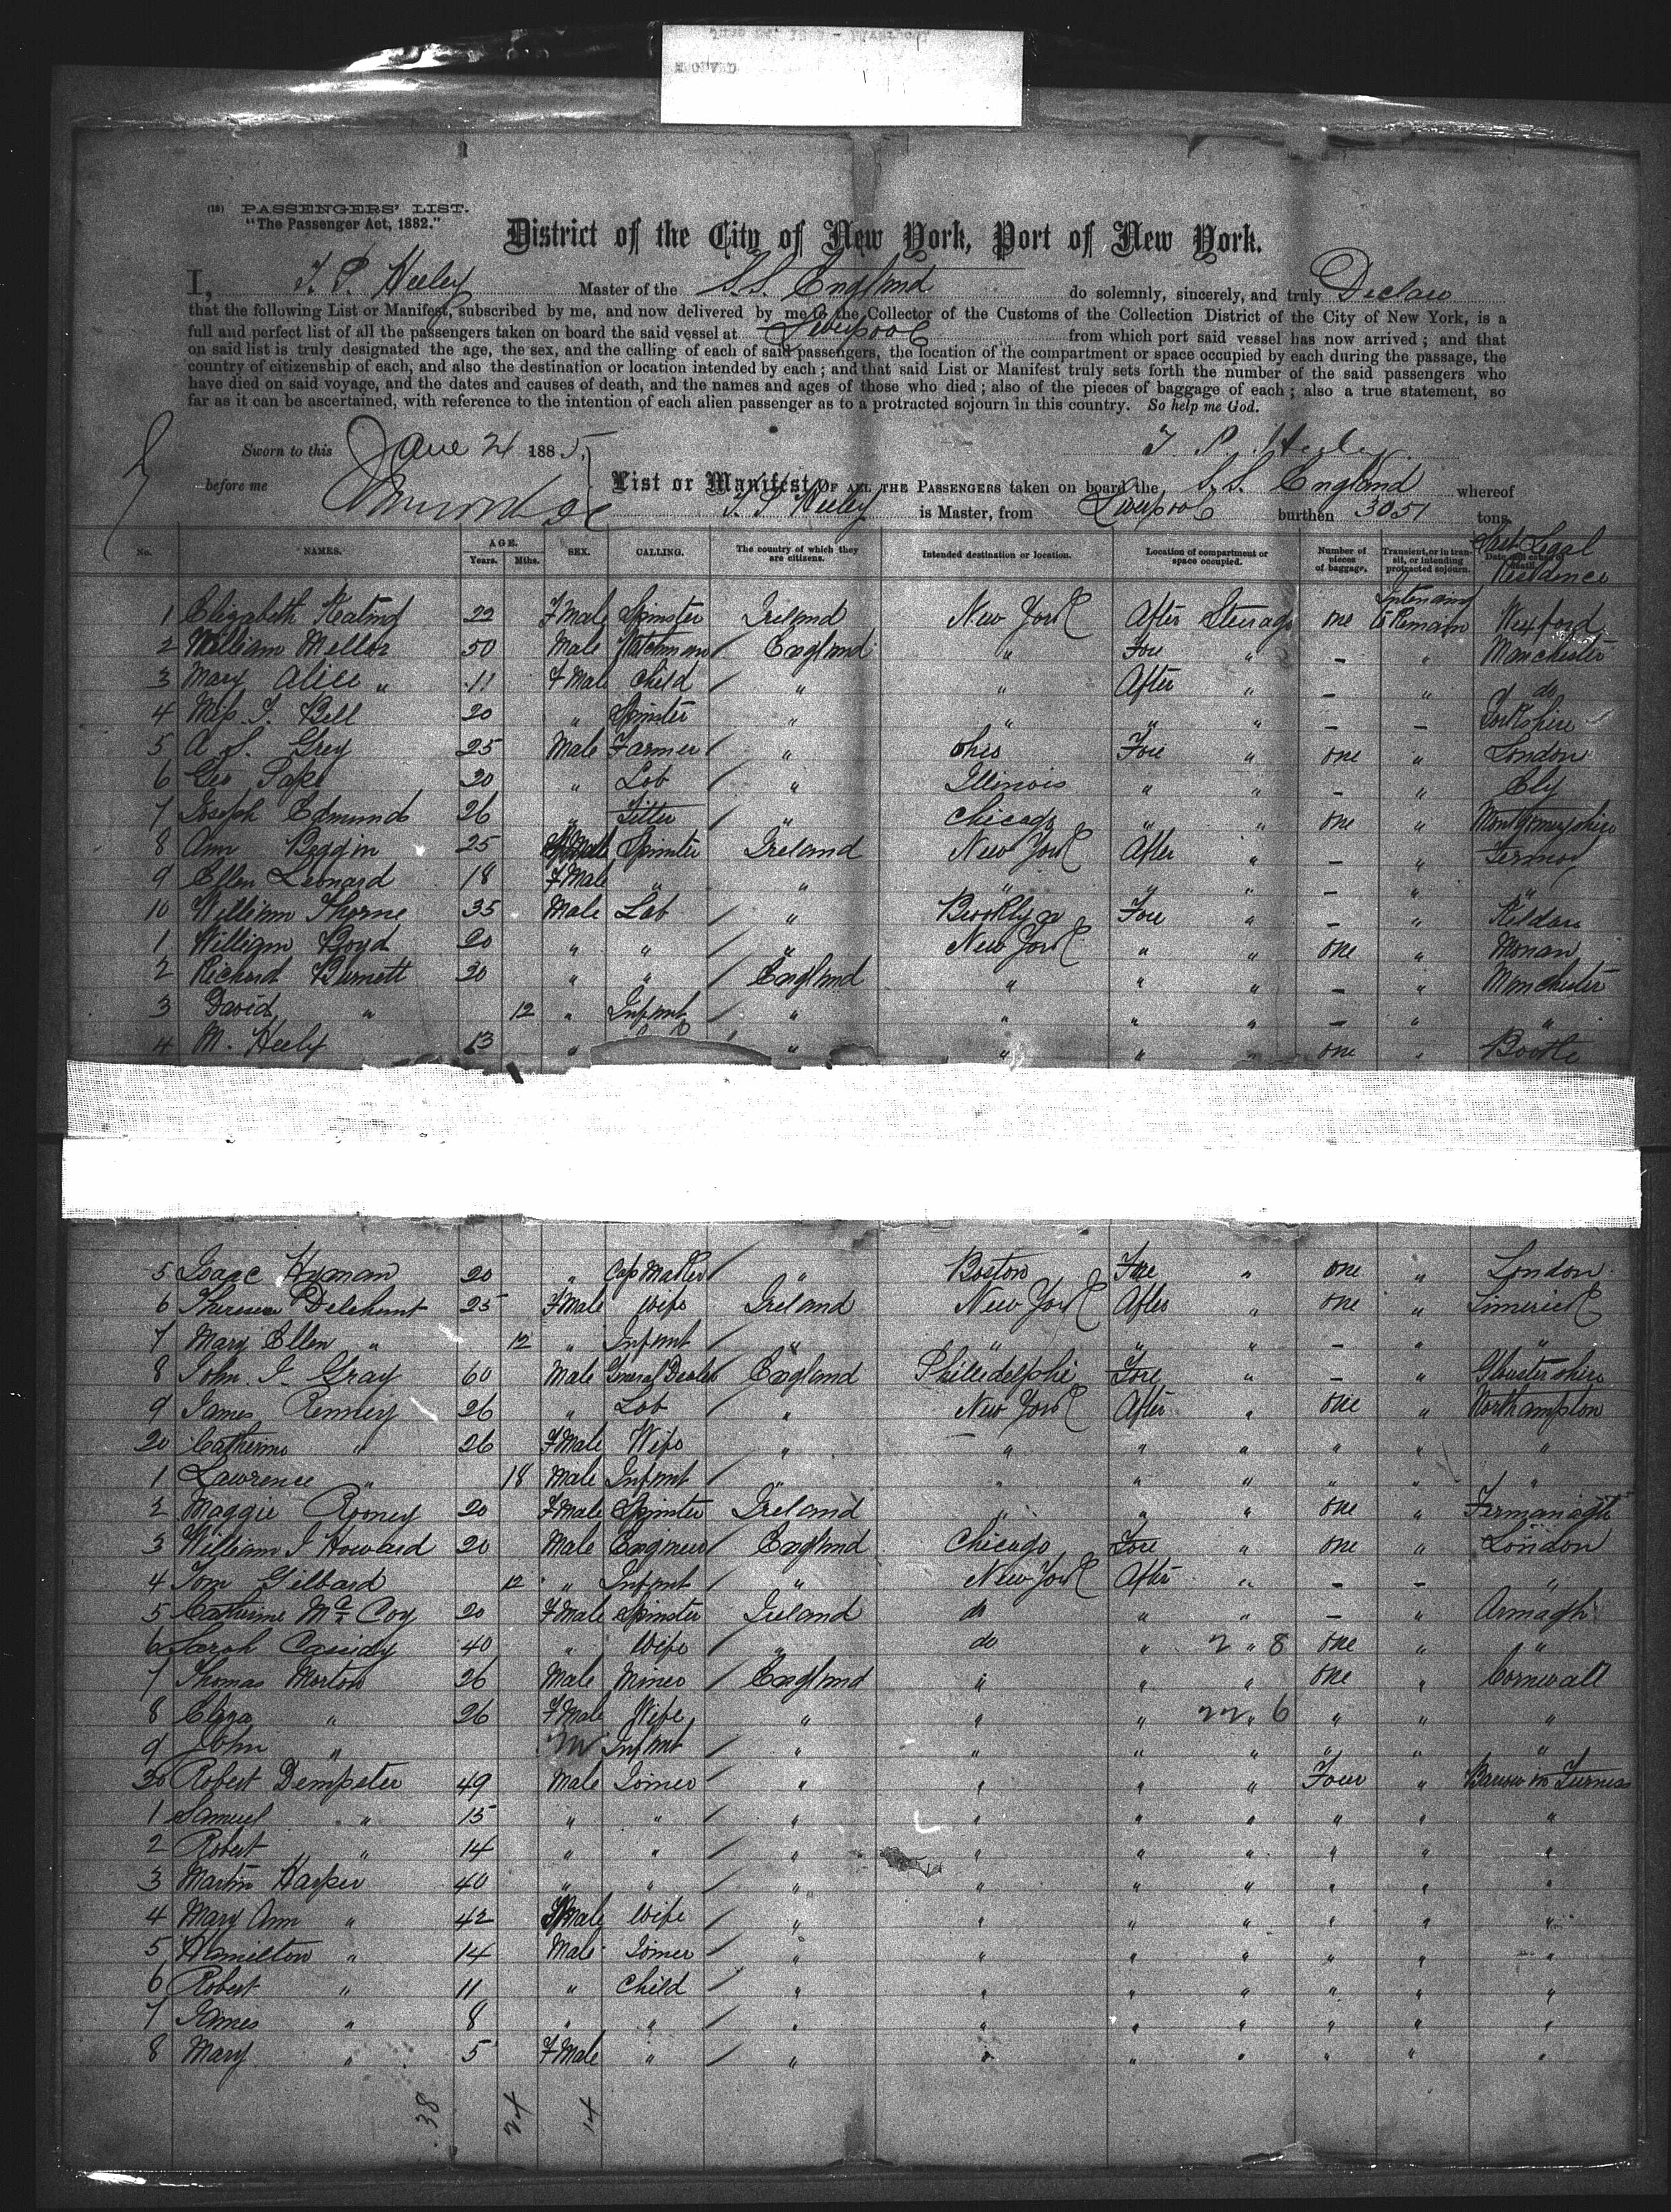 (15) PASSENGERS' LIST.
"The Passenger Act, 1882."
District of the City of New York, Port of New York.
I, T. P. Heeley Master of the S.S. England do solemnly, sincerely, and truly Declare
that the following List or Manifest, subscribed by me, and now delivered by me to the Collector of the Customs of the Collection District of the City of New York, is a
full and perfect list of all the passengers taken on board the said vessel at Liverpool from which port said vessel has now arrived; and that
on said list is truly designated the age, the sex, and the calling of each of said passengers, the location of the compartment or space occupied by each during the passage, the
country of citizenship of each, and also the destination or location intended by each; and that said List or Manifest truly sets forth the number of the said passengers who
have died on said voyage, and the dates and causes of death, and the names and ages of those who died; also of the pieces of baggage of each; also a true statement, so
far as it can be ascertained, with reference to the intention of each alien passenger as to a protracted sojourn in this country. So help me God.
Sworn to this 1885, T. P. Heeley
before me List or Manifest, OF ALL THE PASSENGERS taken on board the S.S. England whereof
T. P. Heeley is Master, from Liverpool burthen 3051 tons.
No. NAMES. AGE. Years. Mths. SEX. CALLING. The country of which they are citizens. Intended destination or location. Location of compartment or space occupied. Number of pieces of baggage. Transient, or in transit, or intending protracted sojourn. Date and cause of death. Last Legal Residence
1 Elizabeth Keating 22 FMale Spinster Ireland New York After Steerage one Intening to Remain Wexford
2 William Mellor 50 Male Watchman / England " Fore " – " Manchester
3 Mary Alice " 11 FMale Child / " " After " – " do
4 Miss J. Bell 20 " Spinster " " " " – – Yorkshire
5 A. S. Grey 25 Male Farmer / " Ohio Fore " one " London
6 Geo Pape 20 " Lab / " Illinois " " – " Ely
7 Joseph Edmunds 26 " Fitter / " Chicago " " one " Montgomeryshire
8 Ann Beggin 25 FMale Spinster Ireland New York After " – "
9 Ellen Leonard 18 FMale " " " " " – " "
10 William Thorne 35 Male Lab / " Brooklyn Fore " – " Kildare
1 William Boyd 20 " " / " New York " " one "
2 Richard Burnett 20 " " / England " " " – " Manchester
3 David " 12 " Infant " " " " – " "
4 M. Heely 13 " " " " " one " Bootle
5 Isaac Hyman 20 " Cap Maker / " Boston Fore " one " London
6 Theresa Delehunt 25 FMale Wife Ireland New York After " one " Limerick
7 Mary Ellen " 12 " Infant / " " " " – " "
8 John. J. Gray 60 Male General Dealer England Philledelphi Fore " – " Gloustershire
9 James Renney 26 " Lab " New York After " one " Northampton
20 Catherine " 26 FMale Wife " " " " " " "
1 Lawrence " 18 Male Infant / " " " " " " "
2 Maggie Rooney 20 FMale Spinster Ireland " " " one " Fermanagh
3 William J Howard 20 Male Engineer England Chicago Fore " one " London
4 Tom Gilbard 12 " Infant / " New York After " – – "
5 Catherine McCoy 20 FMale Spinster Ireland do " " – " Armagh
6 Sarah Cassidy 40 " Wife " do " 2 " 8 one " "
7 Thomas Morton 26 Male Miner / England " " " one " Cornwall
8 Eliza " 26 FMale Wife / " " " 22 " 6 " " "
9 John " M Infant / " " " " " " "
30 Robert Dempster 49 Male Joiner / " " " " Four " Barrow in Furness
1 Samuel " 15 " " / " " " " " " "
2 Robert " 14 " " / " " " " " " "
3 Martin Harper 40 " " / " " " " " " "
4 Mary Ann " 42 FMale Wife / " " " " " " "
5 Hamilton " 14 Male Joiner / " " " " " " "
6 Robert " 11 " Child / " " " " " " "
7 James " 8 " " / " " " " " " "
8 Mary " 5 FMale " / " " " " " " "
38 24 14